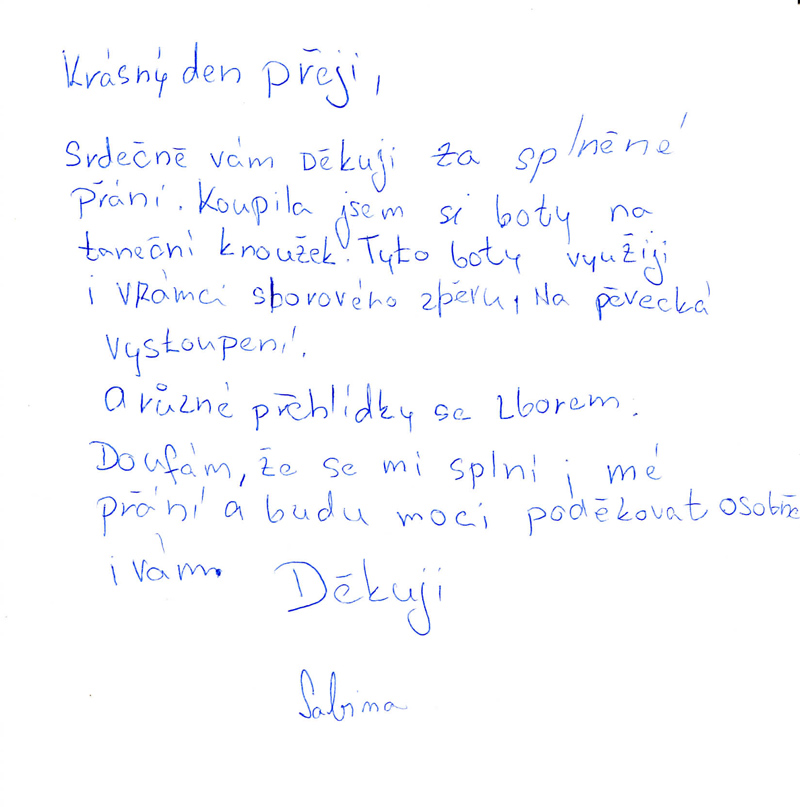 Krásný den přeji,
Srdečně vám Děkuji za splněné
přání. Koupila jsem si boty na
taneční knoužek. Tyto boty využiji
i vRámci sborového zpěvu, Na pěvecká
vystoupení.
A různé přehlídky se zborem.
Doufám, že se mi splní i mé
přání a budu moci poděkovat osobně
i vám.
Děkuji
Sabina